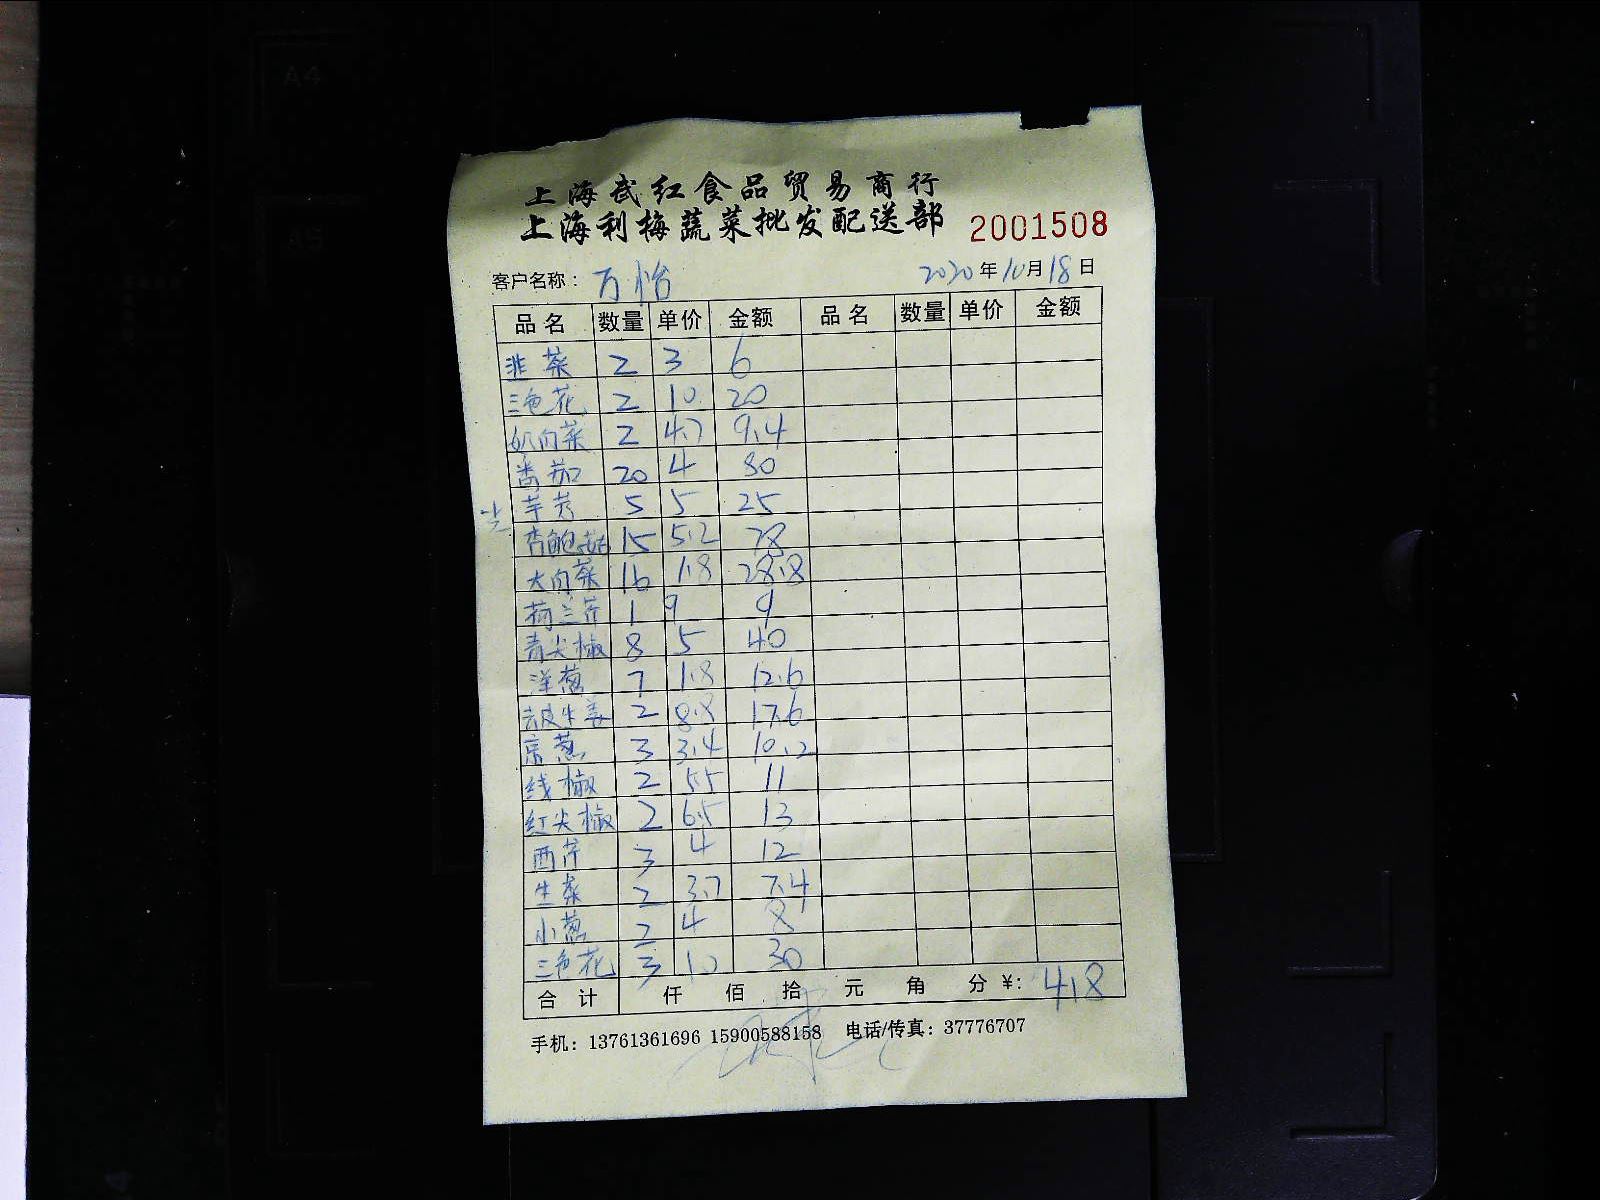 A4
A5
上海武红食品贸易商行
上海利梅蔬菜批发配送部 2001508
客户名称：万怡 2020年10月18日
品名 数量 单价 金额 品名 数量 单价 金额
韭菜 2 3 6
三色花 2 10 20
奶白菜 2 4.7 9.4
番茄 20 4 80
芋艿 5 5 25
杏鲍菇 15 5.2 78
大白菜 16 1.8 28.8
荷兰芹 1 9 9
青尖椒 8 5 40
洋葱 7 1.8 12.6
去皮生姜 2 8.8 17.6
京葱 3 3.4 10.2
线椒 2 5.5 11
红尖椒 2 6.5 13
西芹 3 4 12
生菜 2 3.7 7.4
小葱 2 4 8
三色花 3 10 30
合计 仟 佰 拾 元 角 分 ¥: 418
手机：13761361696 15900588158 电话/传真：37776707